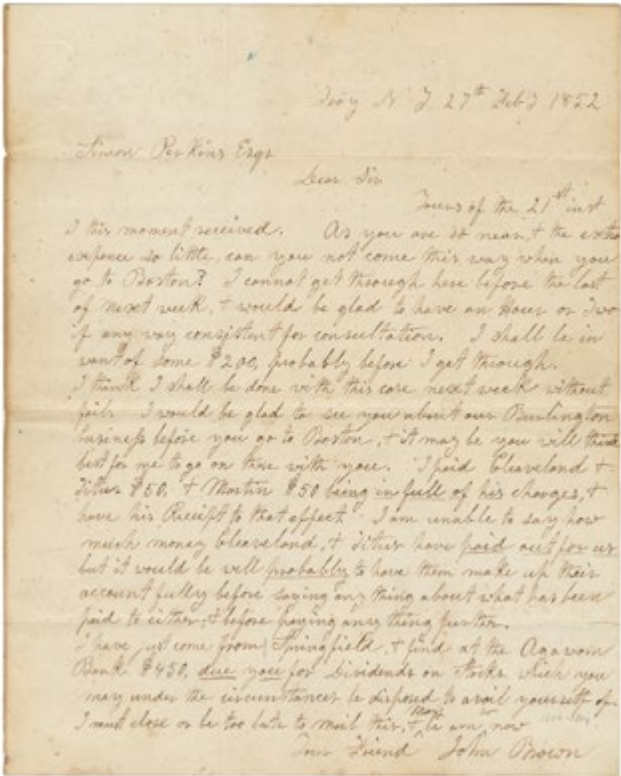 Troy N Y 27th Feby 1852
Simon Perkins Esqr
Dear Sir
Yours of the 21st inst
I this moment received. As you are so near, & the extra
expence so little, can you not come this way when you
go to Boston? I cannot get through here before the last
of next week, & would be glad to have an Hour or Two
if any way consistent for consultation. I shall be in
want of some $200, probably before I get through.
I think I shall be done with this case next week without
fail. I would be glad to see you about our Burlington
business before you go to Boston, & it may be you will think
best for me to go on there with you. I paid Cleaveland &
Titus $50, & Martin $50 being in full of his charges, &
have his Receipt to that effect. I am unable to say how
much money Cleaveland, & Titus have paid out for us
but it would be well probably to have them make up their
account fully before saying any thing about what has been
paid to either, & before paying any thing further.
I have just come from Springfield, & find at the Agawam
Bank $450, due you for Dividends on Stocks which you
may under the circumstances be disposed to avail yourself of.
I must close or be too late to mail this, &
now
Your Friend John Brown